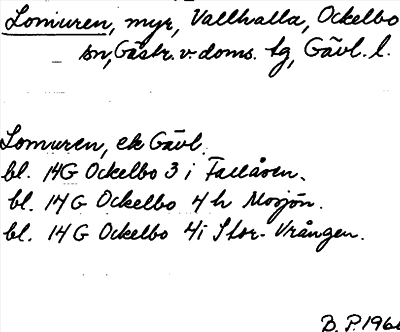 Lomuren, myr, Vallhalla, Ockelbo
sn, Gästr. v. doms. tg, Gävl. l.
Lomuren, ek Gävl.
bl. 14G Ockelbo 3 i Fallåsen.
bl. 14G Ockelbo 4 h Mosjön.
bl. 14G Ockelbo 4i Stor-Vrången.
B. P.